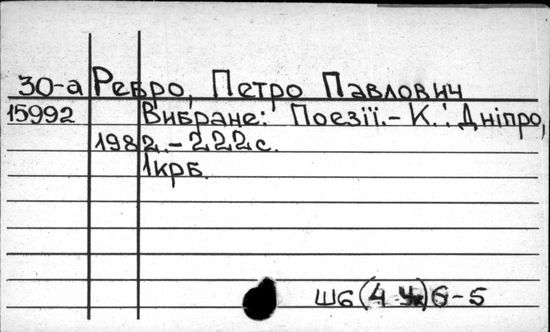 30-а Ребро, Петро Павлович
15992 Вибране: Поезії.- К.: Дніпро,
1982.-222с.
1крб.
Ш6(4Ук)6-5